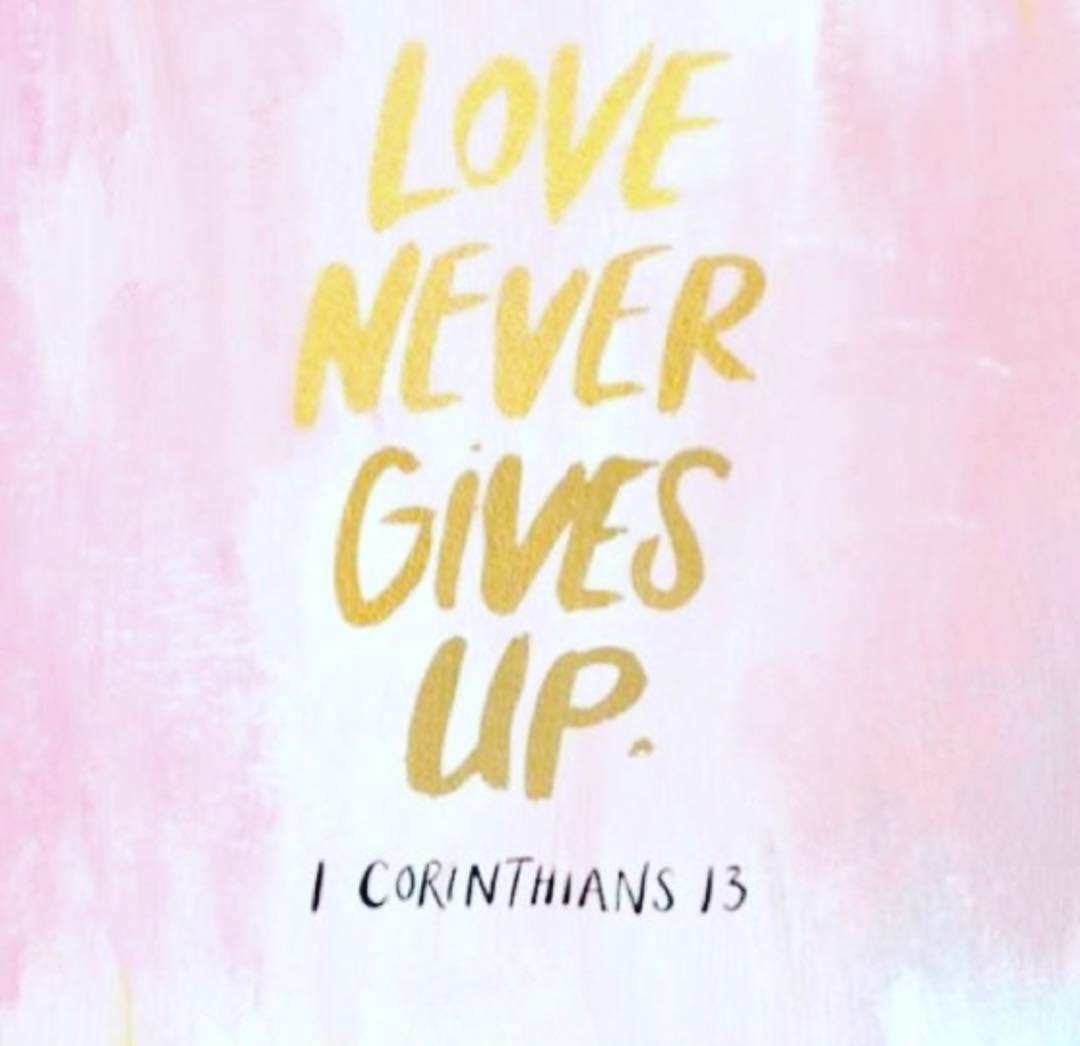 LOVE
NEVER
GIVES
UP.
1 CORINTHIANS 13